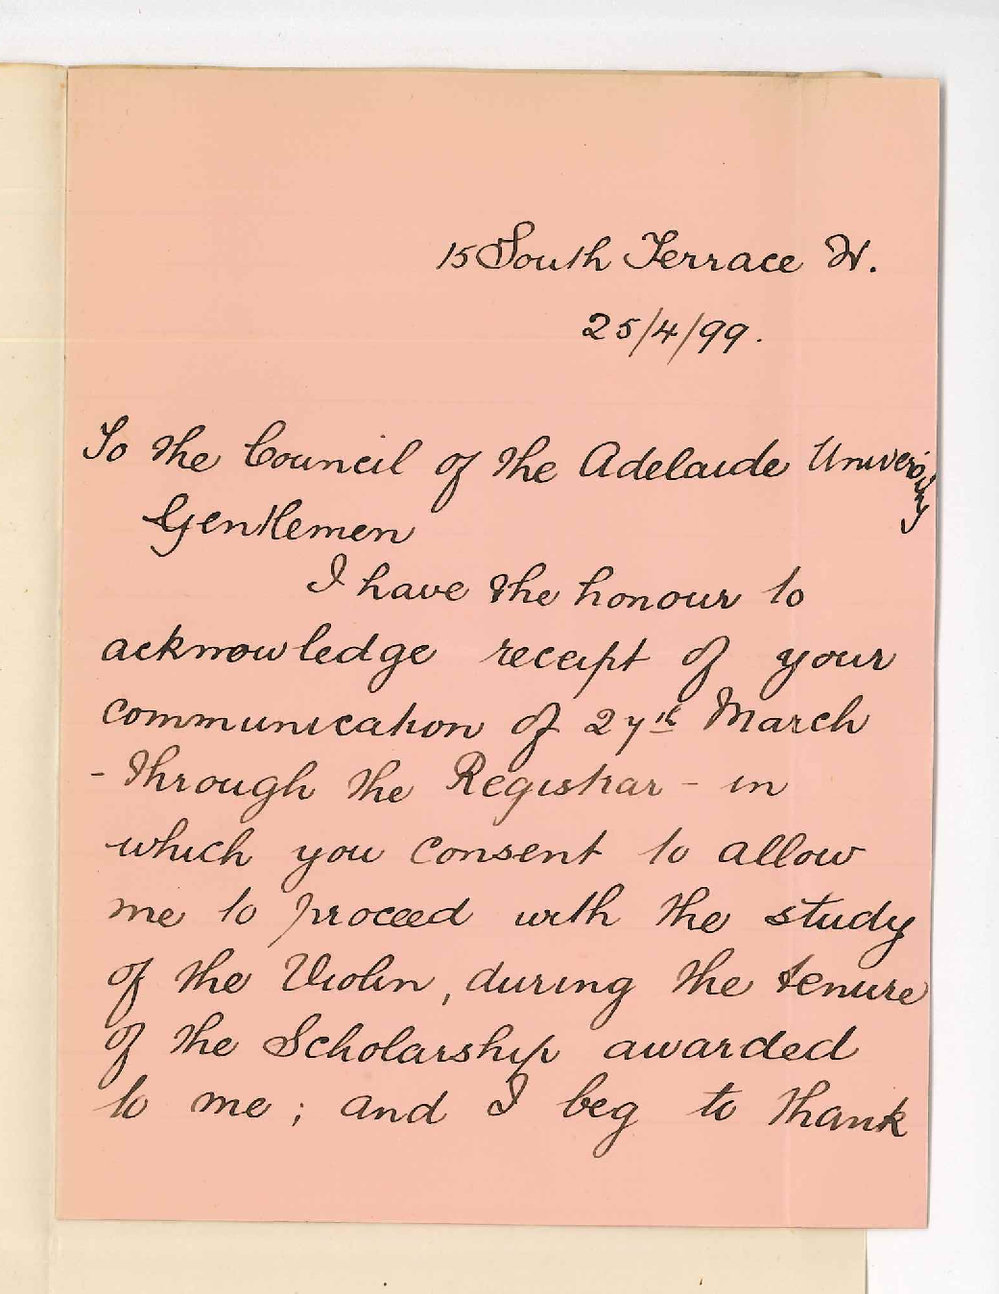 15 South Terrace W.
25/4/99.
To the Council of the Adelaide University
Gentlemen
I have the honour to
acknowledge receipt of your
communication of 27th March
- through the Registrar - in
which you consent to allow
me to proceed with the study
of the Violin, during the tenure
of the Scholarship awarded
to me; and I beg to thank